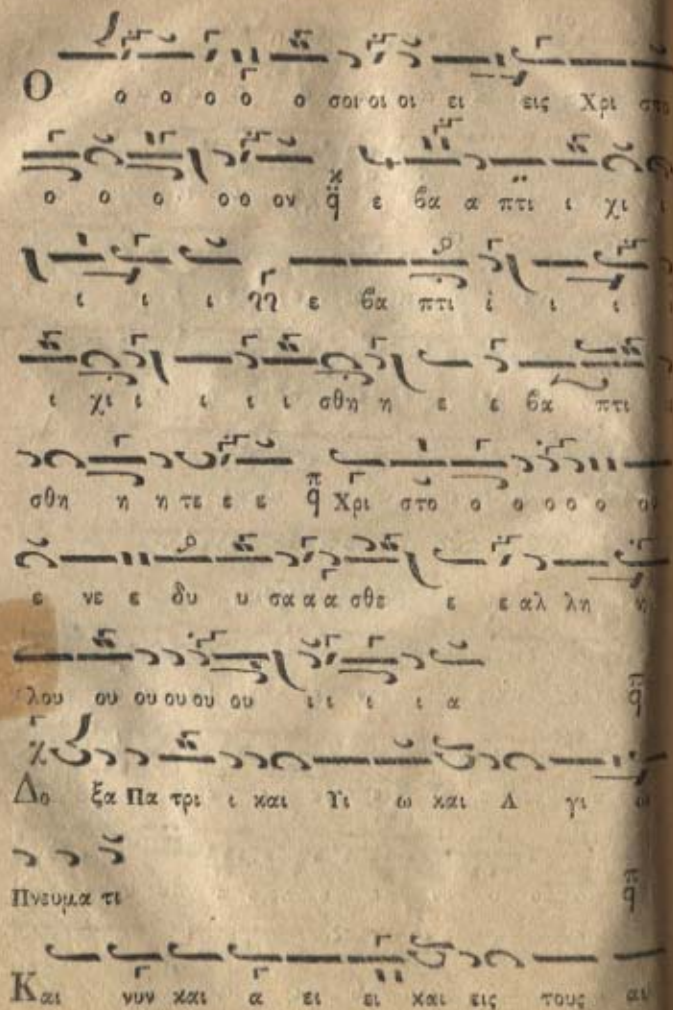 Ο ο ο ο ο ο σοι οι οι ει εις Χρι στο
ο ο ο ο ο ον ε βα α πτι ι χι ι
ι ι ι ε βα πτι ι ι ι
ι χι ι ι ι ι σθη η ε ε βα πτι
σθη η η τε ε ε Χρι στο ο ο ο ο ο ον
ε νε ε δυ υ σα α α σθε ε ε αλ λη η
λου ου ου ου ου ου ι ι ι ι α
Δο ξα Πα τρι ι και Υι ω και Α γι ω
Πνευμα τι
Και νυν και α ει ει και εις τους αι